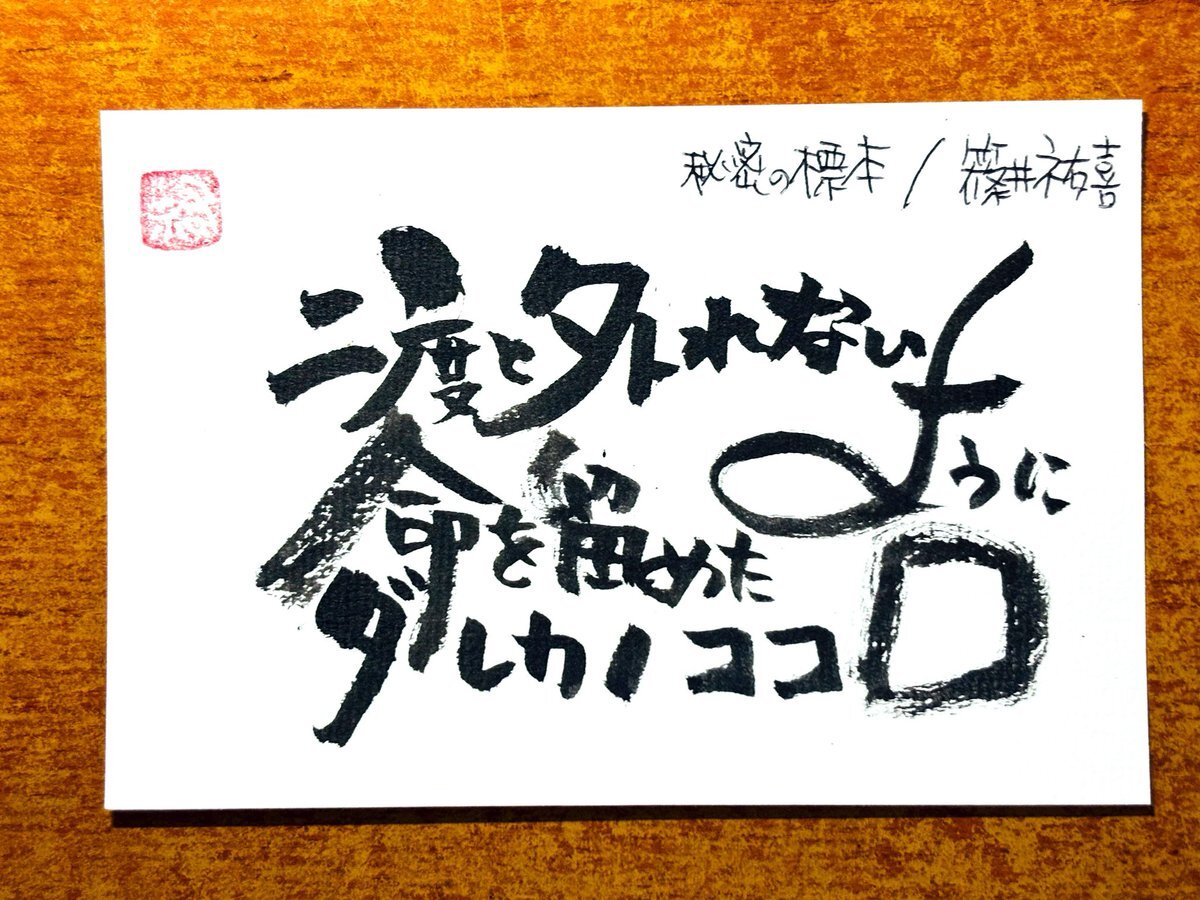 秘密の標本 / 篠井祐喜
二度と外れないように
命を留めた
ダレカノココロ